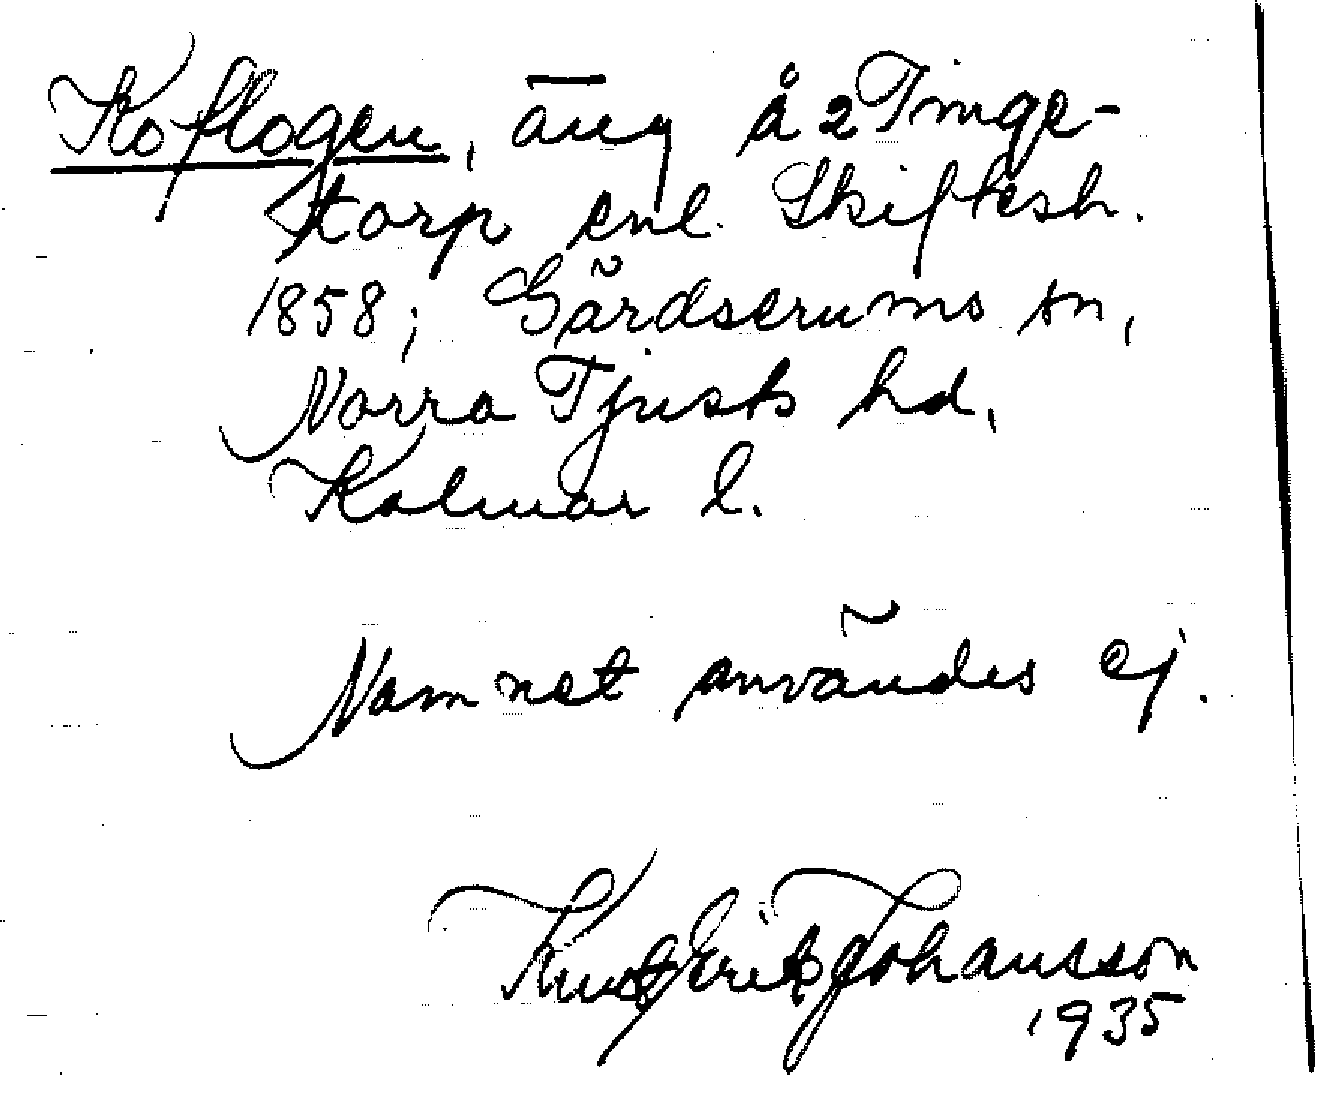 Koflogen, äng å 2 Tinge-
storp enl. Skiftesh.
1858; Gärdserums sn,
Norra Tjusts hd,
Kalmar l.
Namnet användes ej.
Knut Erik Johansson
1935